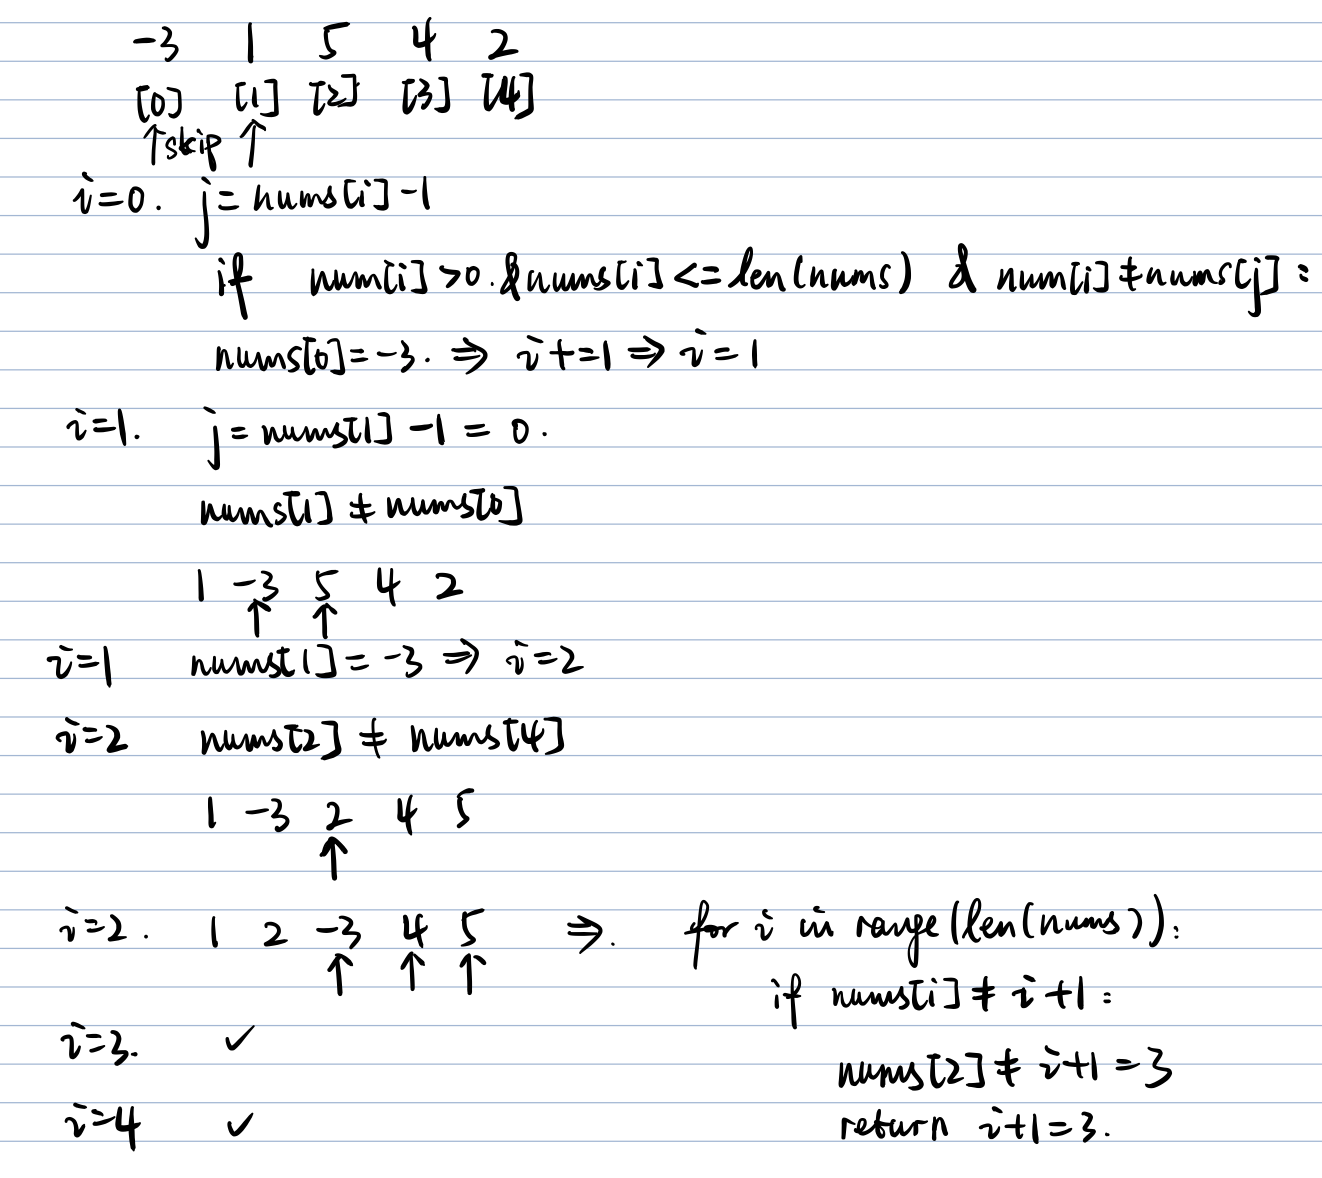 -3 1 5 4 2
[0] [1] [2] [3] [4]
↑skip ↑
i=0. j=nums[i]-1
if num[i]>0.&nums[i]<=len(nums) & num[i]≠nums[j]:
nums[0]=-3. ⇒ i+=1 ⇒ i=1
i=1. j=nums[1]-1=0.
nums[1]≠nums[0]
1 -3 5 4 2
↑ ↑
i=1 nums[1]=-3 ⇒ i=2
i=2 nums[2]≠nums[4]
1 -3 2 4 5
↑
i=2. 1 2 -3 4 5 ⇒. for i in range(len(nums)):
↑ ↑ ↑ if nums[i]≠i+1:
i=3. ✓
nums[2]≠i+1=3
i=4 ✓ return i+1=3.